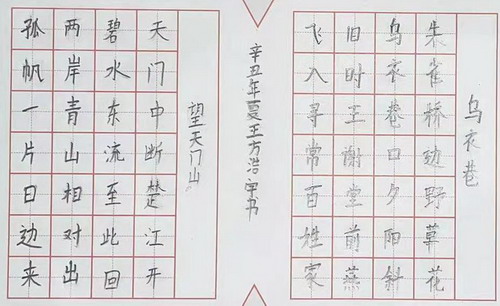 乌衣巷
朱雀骄边野草花
乌衣巷口夕阳斜
旧时王谢堂前燕
飞入寻常百姓家
辛丑年夏王方浩甲书
望天门山
天门中断楚江开
碧水东流至此回
两岸青山相对出
孤帆一片日边来